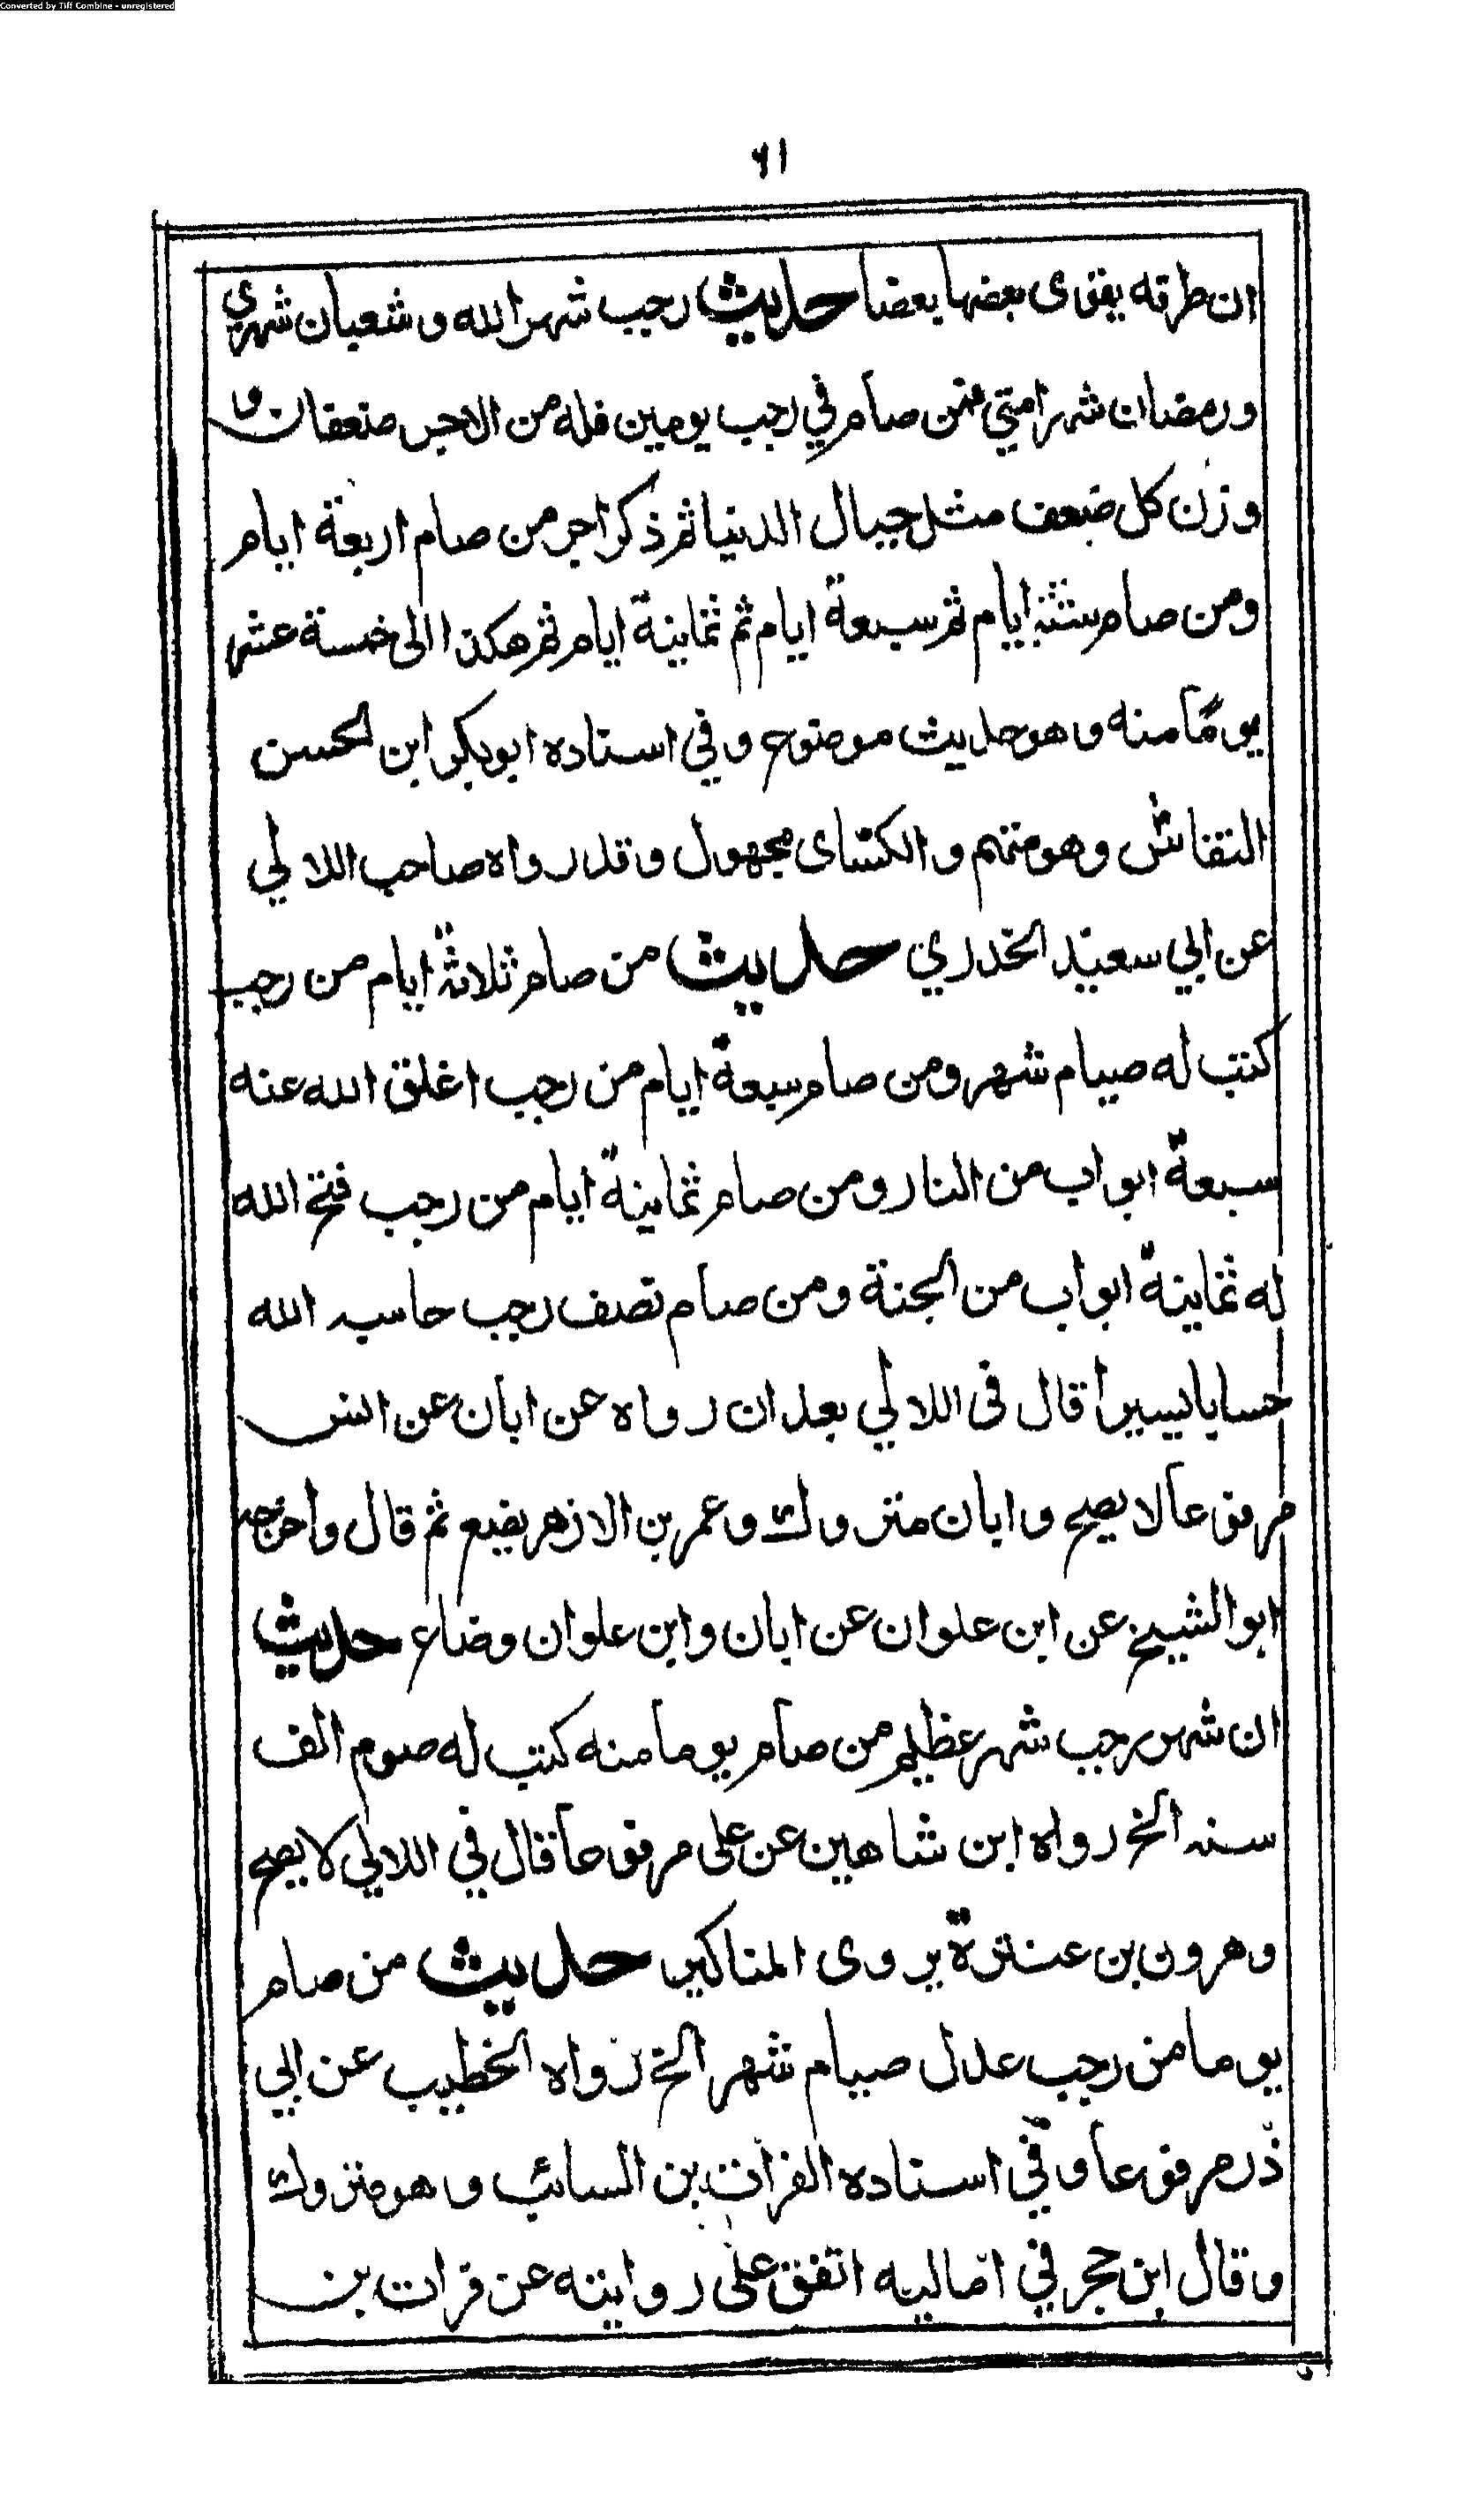 Converted by Tiff Combine - unregistered
٦١
ان طرقه يقوى بعضها بعضا حديث رجب شهر الله وشعبان شهري
ورمضان شهر امتي فمن صام في رجب يومين فله من الاجر ضعفان و
وزن كل ضعف مثل جبال الدنيا ثم ذكر اجر من صام اربعة ايام
ومن صام ستة ايام ثم سبعة ايام ثم ثمانية ايام ثم هكذا الى خمسة عشر
يومًا منه وهو حديث موضوع وفي اسناده ابو بكر ابن الحسن
النقاش وهو متهم والكسائ مجهول وقد رواه صاحب اللالي
عن ابي سعيد الخدري حديث من صام ثلاثة ايام من رجب
كتب له صيام شهر ومن صام سبعة ايام من رجب اغلق الله عنه
سبعة ابواب من النار ومن صام ثمانية ايام من رجب فتح الله
له ثمانية ابواب من الجنة ومن صام نصف رجب حاسبه الله
حسابا يسيرا قال فى اللالي بعد ان رواه عن ابان عن انس
مرفوعا لا يصح وابان متروك وعمر بن الازهر يضع ثم قال واخرجه
ابو الشيخ عن ابن علوان عن ابان وابن علوان وضاع حديث
ان شهر رجب شهر عظيم من صام يوما منه كتب له صوم الف
سنه الخ رواه ابن شاهين عن على مرفوعا قال في اللالي لا يصح
وهرون بن عنترة يروى المناكير حديث من صام
يوما من رجب عدل صيام شهر الخ رواه الخطيب عن ابي
ذر مرفوعا وفي اسناده الفرات بن السائب وهو متروك
وقال ابن حجر في اماليه اتفق على روايته عن فرات بن